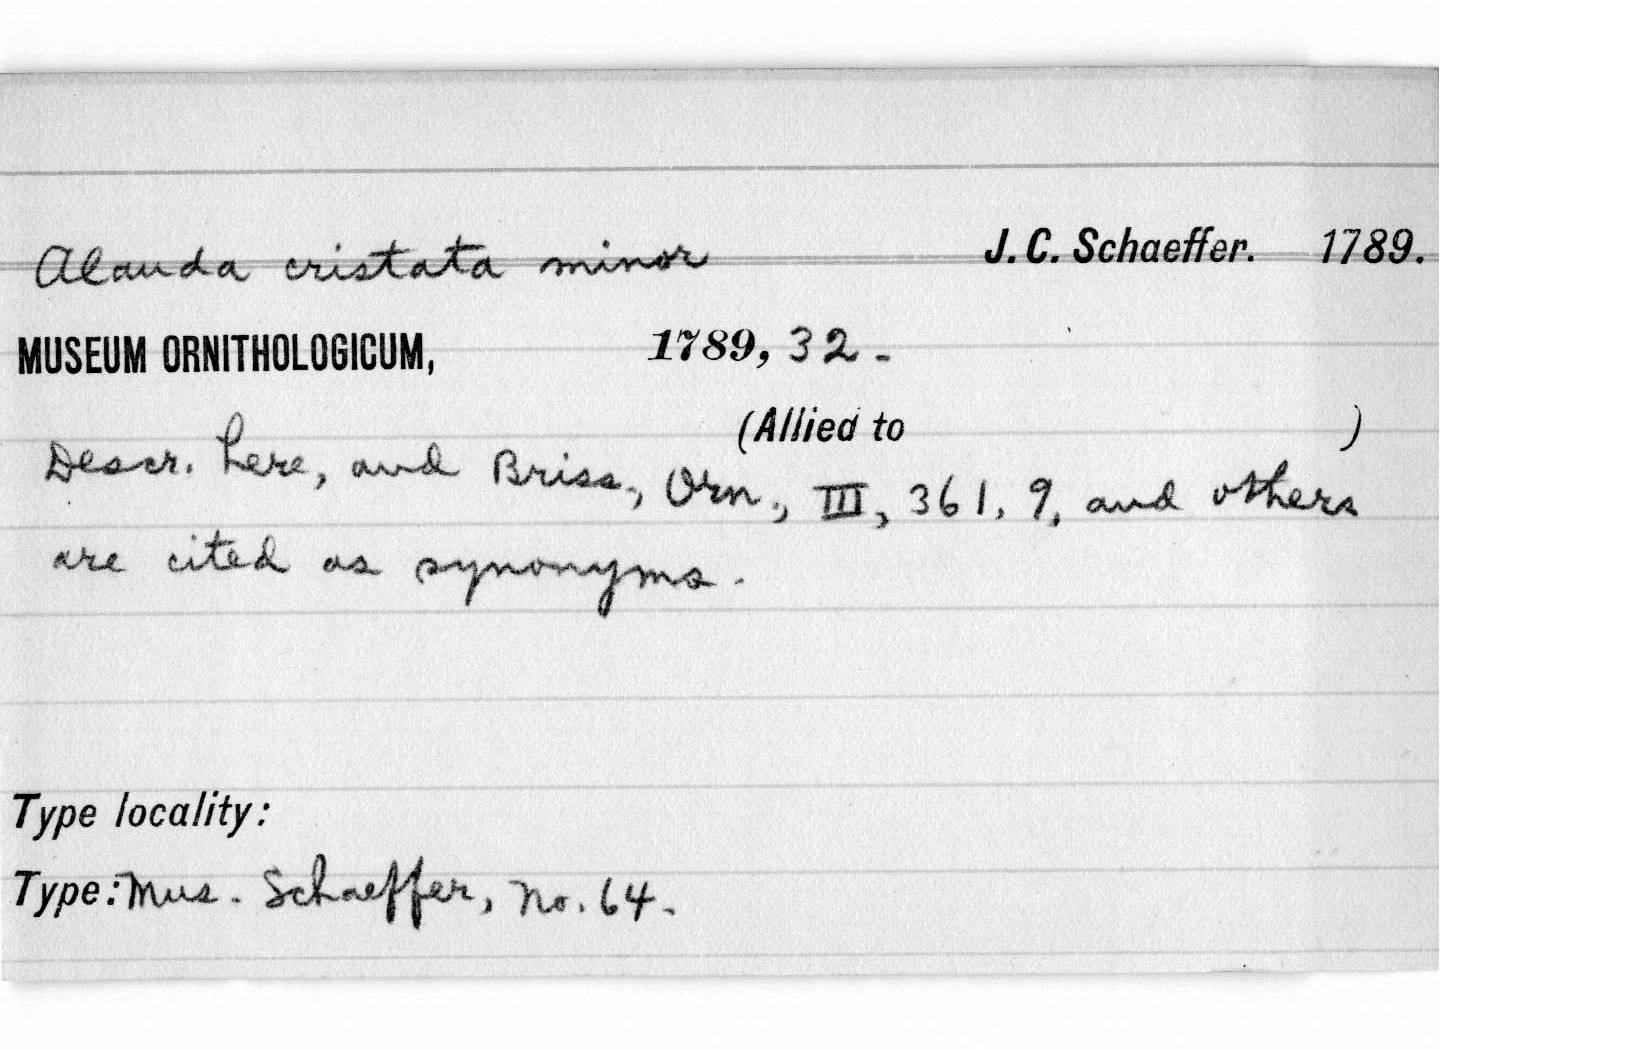 Alauda cristata minor J. C. Schaeffer. 1789.
MUSEUM ORNITHOLOGICUM, 1789, 32.
(Allied to )
Descr. here, and Briss., Orn., III, 361, 9, and others
are cited as synonyms.
Type locality:
Type: Mus. Schaeffer, No. 64.